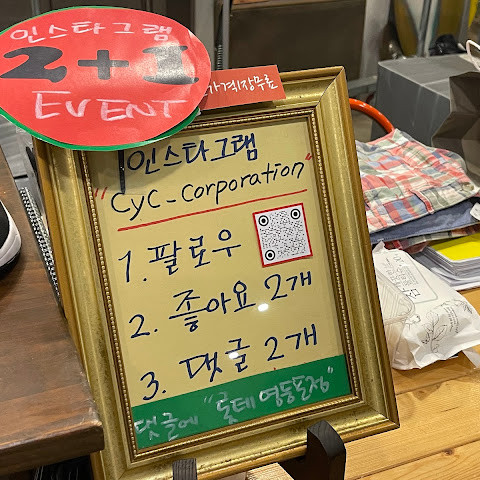 인스타그램
2+1
EVENT
가격1장무료
인스타그램
"CyC-Corporation"
1. 팔로우
2. 좋아요 2개
3. 댓글 2개
댓글에 "롯데 영등포점"